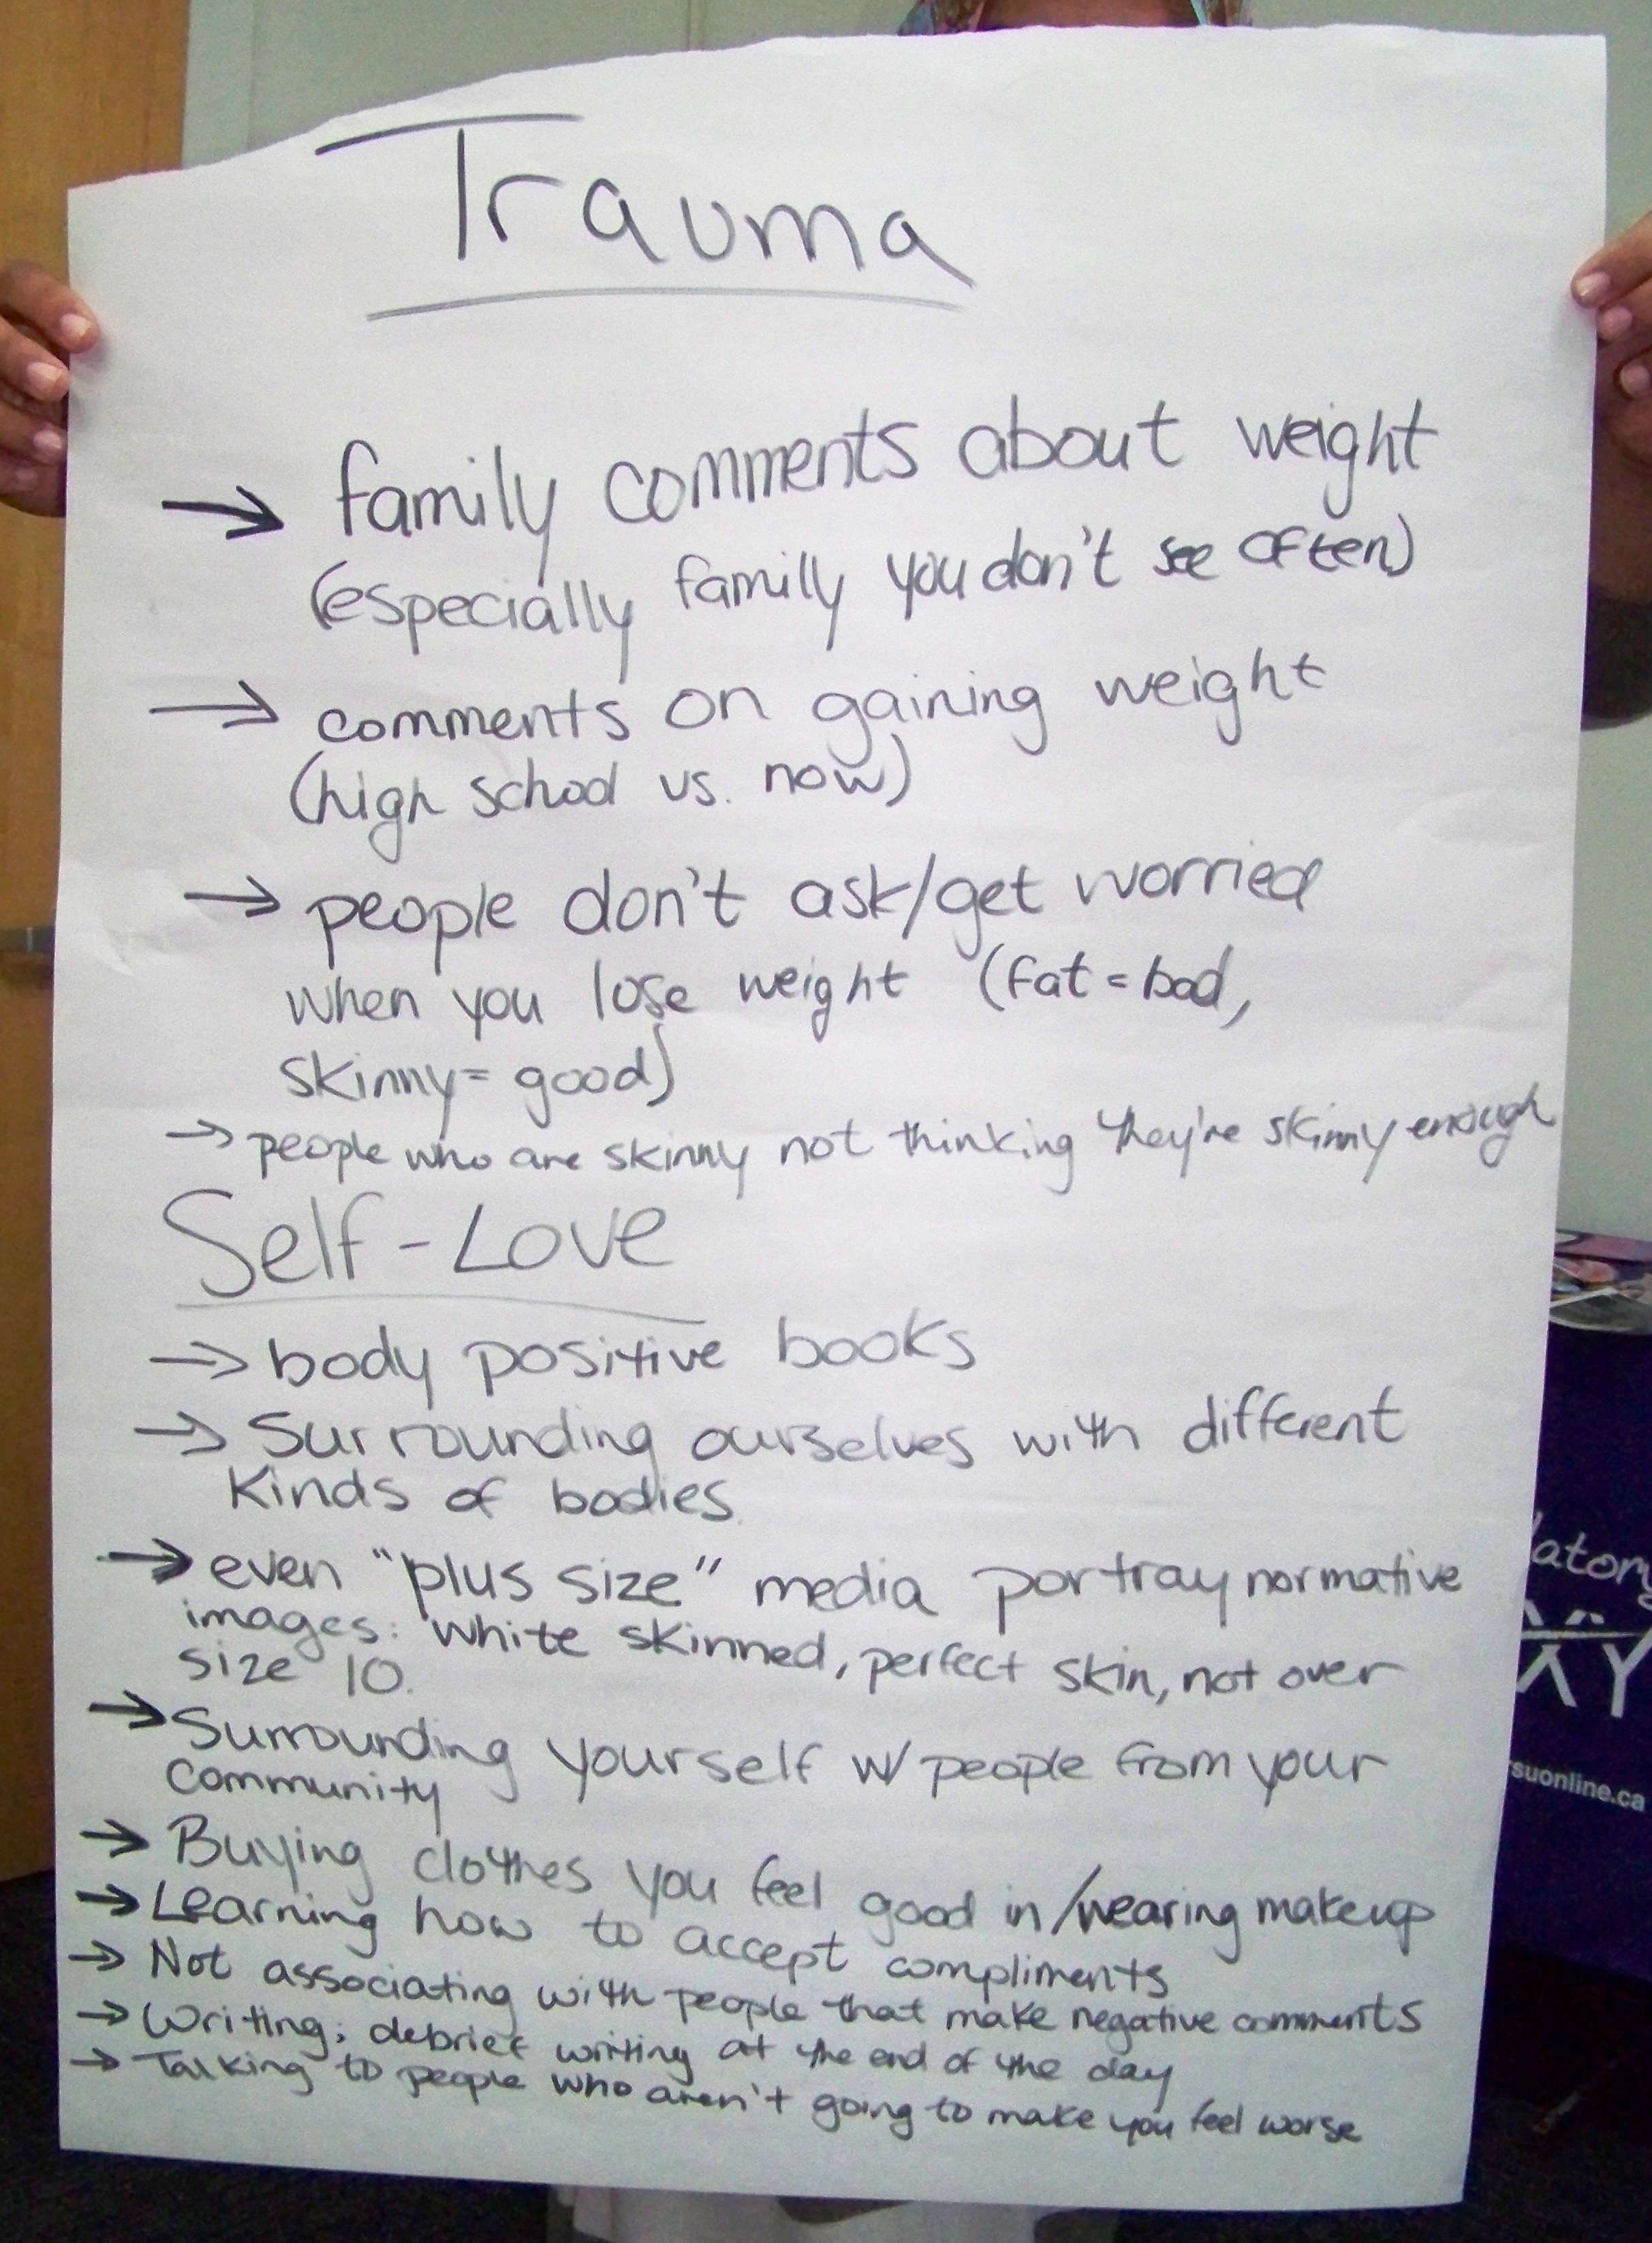 Trauma
→ family comments about weight
(especially family you don't see often)
→ comments on gaining weight
(high school vs. now)
→ people don't ask/get worried
when you lose weight (fat = bad,
skinny = good)
→ people who are skinny not thinking they're skinny enough
Self-Love
→ body positive books
→ Surrounding ourselves with different
kinds of bodies.
→ even "plus size" media portray normative
images: white skinned, perfect skin, not over
size 10.
→ Surrounding yourself w/ people from your
community
→ Buying clothes you feel good in/wearing makeup
→ Learning how to accept compliments
→ Not associating with people that make negative comments
→ Writing; debrief writing at the end of the day
→ Talking to people who aren't going to make you feel worse
suonline.ca